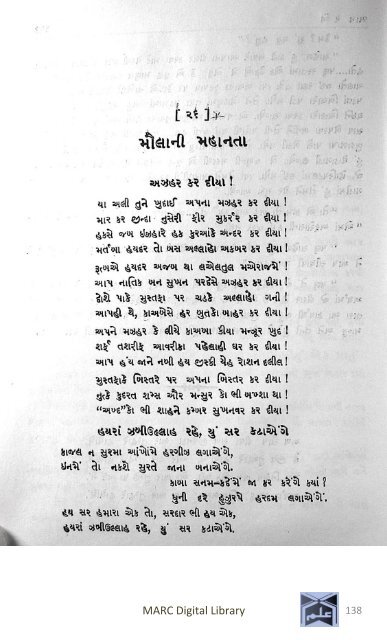 [ ૨૬ ]
મૌલાની મહાનતા
અઝહર કર દીયા !
યા અલી તુને ખુદાઈ અપના મઝહર કર દીયા !
માર કર જીન્દા નુસેરી ફીર સુકર્રૂર કર દીયા !
હકસે જબ ઇઝહારે હક કુરઆંકે અન્દર કર દીયા !
મર્તબા હયદર તો બસ અલ્લાહો અકબર કર દીયા !
રૂત્બએ હયદર અજબ થા લએલતુલ મએરાજમેં !
આપ નાતિક બન સુખન પરદેસે અઝહર કર દીયા !
દોશે પાકે મુસ્તફા પર ચડકે અલ્લાહો ગની !
આપહી થે, કાઅબેસે હર બુતકો બાહર કર દીયા !
અપને મઝહર કે લીયે કાઅબા કીયા મન્ઝૂર ખુદ !
શર્ફે તશરીફ આવરીકા પેહલાહી ઘર કર દીયા !
આપ હય જાને નબી હય જીસ્કી યેહ રોશન દલીલ !
મુસ્તફાકે બિસ્તરે પર અપના બિસ્તર કર દીયા !
નુત્કે કુદરત શમ્સ ઔર મન્સુર કો ભી બખ્શા થા !
“અબ્દ”કો ભી શાહને કમ્બર સુખનવર કર દીયા !
હયરાં ઝબીઉલ્લાહ રહે, યું સર કટાએંગે
કાજલ ન સુરમા આંખોમેં હરગીઝ લગાએંગે,
ઇનમેં તો નકશે સુરતે જાના બનાએંગે.
કાબા સનમ-કદેમેં જા કર કરેંગે ક્યાં ?
ધુની દરે હુઝુરપે હરદમ લગાએંગે.
હય સર હમારા એક તો, સરદાર ભી હય એક,
હયરાં ઝબીઉલ્લાહ રહે, યું સર કટાએંગે.
MARC Digital Library
138